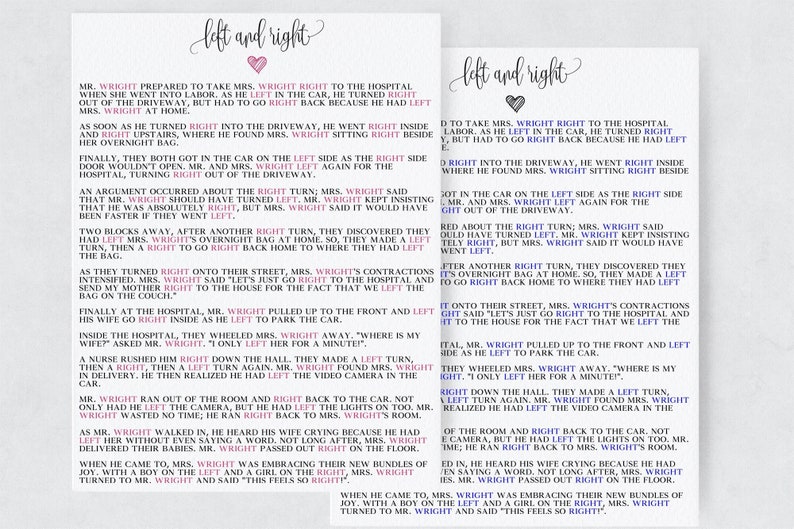 left and right
MR. WRIGHT PREPARED TO TAKE MRS. WRIGHT RIGHT TO THE HOSPITAL
WHEN SHE WENT INTO LABOR. AS HE LEFT IN THE CAR, HE TURNED RIGHT
OUT OF THE DRIVEWAY, BUT HAD TO GO RIGHT BACK BECAUSE HE HAD LEFT
MRS. WRIGHT AT HOME.
AS SOON AS HE TURNED RIGHT INTO THE DRIVEWAY, HE WENT RIGHT INSIDE
AND RIGHT UPSTAIRS, WHERE HE FOUND MRS. WRIGHT SITTING RIGHT BESIDE
HER OVERNIGHT BAG.
FINALLY, THEY BOTH GOT IN THE CAR ON THE LEFT SIDE AS THE RIGHT SIDE
DOOR WOULDN'T OPEN. MR. AND MRS. WRIGHT LEFT AGAIN FOR THE
HOSPITAL, TURNING RIGHT OUT OF THE DRIVEWAY.
AN ARGUMENT OCCURRED ABOUT THE RIGHT TURN; MRS. WRIGHT SAID
THAT MR. WRIGHT SHOULD HAVE TURNED LEFT. MR. WRIGHT KEPT INSISTING
THAT HE WAS ABSOLUTELY RIGHT, BUT MRS. WRIGHT SAID IT WOULD HAVE
BEEN FASTER IF THEY WENT LEFT.
TWO BLOCKS AWAY, AFTER ANOTHER RIGHT TURN, THEY DISCOVERED THEY
HAD LEFT MRS. WRIGHT'S OVERNIGHT BAG AT HOME. SO, THEY MADE A LEFT
TURN, THEN A RIGHT TO GO RIGHT BACK HOME TO WHERE THEY HAD LEFT
THE BAG.
AS THEY TURNED RIGHT ONTO THEIR STREET, MRS. WRIGHT'S CONTRACTIONS
INTENSIFIED. MRS. WRIGHT SAID "LET'S JUST GO RIGHT TO THE HOSPITAL AND
SEND MY MOTHER RIGHT TO THE HOUSE FOR THE FACT THAT WE LEFT THE
BAG ON THE COUCH."
FINALLY AT THE HOSPITAL, MR. WRIGHT PULLED UP TO THE FRONT AND LEFT
HIS WIFE GO RIGHT INSIDE AS HE LEFT TO PARK THE CAR.
INSIDE THE HOSPITAL, THEY WHEELED MRS. WRIGHT AWAY. "WHERE IS MY
WIFE?" ASKED MR. WRIGHT. "I ONLY LEFT HER FOR A MINUTE!".
A NURSE RUSHED HIM RIGHT DOWN THE HALL. THEY MADE A LEFT TURN,
THEN A RIGHT, THEN A LEFT TURN AGAIN. MR. WRIGHT FOUND MRS. WRIGHT
IN DELIVERY. HE THEN REALIZED HE HAD LEFT THE VIDEO CAMERA IN THE
CAR.
MR. WRIGHT RAN OUT OF THE ROOM AND RIGHT BACK TO THE CAR. NOT
ONLY HAD HE LEFT THE CAMERA, BUT HE HAD LEFT THE LIGHTS ON TOO. MR.
WRIGHT WASTED NO TIME; HE RAN RIGHT BACK TO MRS. WRIGHT'S ROOM.
AS MR. WRIGHT WALKED IN, HE HEARD HIS WIFE CRYING BECAUSE HE HAD
LEFT HER WITHOUT EVEN SAYING A WORD. NOT LONG AFTER, MRS. WRIGHT
DELIVERED THEIR BABIES. MR. WRIGHT PASSED OUT RIGHT ON THE FLOOR.
WHEN HE CAME TO, MRS. WRIGHT WAS EMBRACING THEIR NEW BUNDLES OF
JOY. WITH A BOY ON THE LEFT AND A GIRL ON THE RIGHT, MRS. WRIGHT
TURNED TO MR. WRIGHT AND SAID "THIS FEELS SO RIGHT!".
left and right
TO TAKE MRS. WRIGHT RIGHT TO THE HOSPITAL
LABOR. AS HE LEFT IN THE CAR, HE TURNED RIGHT
BUT HAD TO GO RIGHT BACK BECAUSE HE HAD LEFT
RIGHT INTO THE DRIVEWAY, HE WENT RIGHT INSIDE
WHERE HE FOUND MRS. WRIGHT SITTING RIGHT BESIDE
GOT IN THE CAR ON THE LEFT SIDE AS THE RIGHT SIDE
MR. AND MRS. WRIGHT LEFT AGAIN FOR THE
OUT OF THE DRIVEWAY.
ABOUT THE RIGHT TURN; MRS. WRIGHT SAID
HAVE TURNED LEFT. MR. WRIGHT KEPT INSISTING
RIGHT, BUT MRS. WRIGHT SAID IT WOULD HAVE
WENT LEFT.
AFTER ANOTHER RIGHT TURN, THEY DISCOVERED THEY
OVERNIGHT BAG AT HOME. SO, THEY MADE A LEFT
GO RIGHT BACK HOME TO WHERE THEY HAD LEFT
ONTO THEIR STREET, MRS. WRIGHT'S CONTRACTIONS
SAID "LET'S JUST GO RIGHT TO THE HOSPITAL AND
TO THE HOUSE FOR THE FACT THAT WE LEFT THE
MR. WRIGHT PULLED UP TO THE FRONT AND LEFT
AS HE LEFT TO PARK THE CAR.
THEY WHEELED MRS. WRIGHT AWAY. "WHERE IS MY
"I ONLY LEFT HER FOR A MINUTE!".
DOWN THE HALL. THEY MADE A LEFT TURN,
LEFT TURN AGAIN. MR. WRIGHT FOUND MRS. WRIGHT
REALIZED HE HAD LEFT THE VIDEO CAMERA IN THE
OF THE ROOM AND RIGHT BACK TO THE CAR. NOT
CAMERA, BUT HE HAD LEFT THE LIGHTS ON TOO. MR.
HE RAN RIGHT BACK TO MRS. WRIGHT'S ROOM.
IN, HE HEARD HIS WIFE CRYING BECAUSE HE HAD
SAYING A WORD. NOT LONG AFTER, MRS. WRIGHT
MR. WRIGHT PASSED OUT RIGHT ON THE FLOOR.
WHEN HE CAME TO, MRS. WRIGHT WAS EMBRACING THEIR NEW BUNDLES OF
JOY. WITH A BOY ON THE LEFT AND A GIRL ON THE RIGHT, MRS. WRIGHT
TURNED TO MR. WRIGHT AND SAID "THIS FEELS SO RIGHT!".